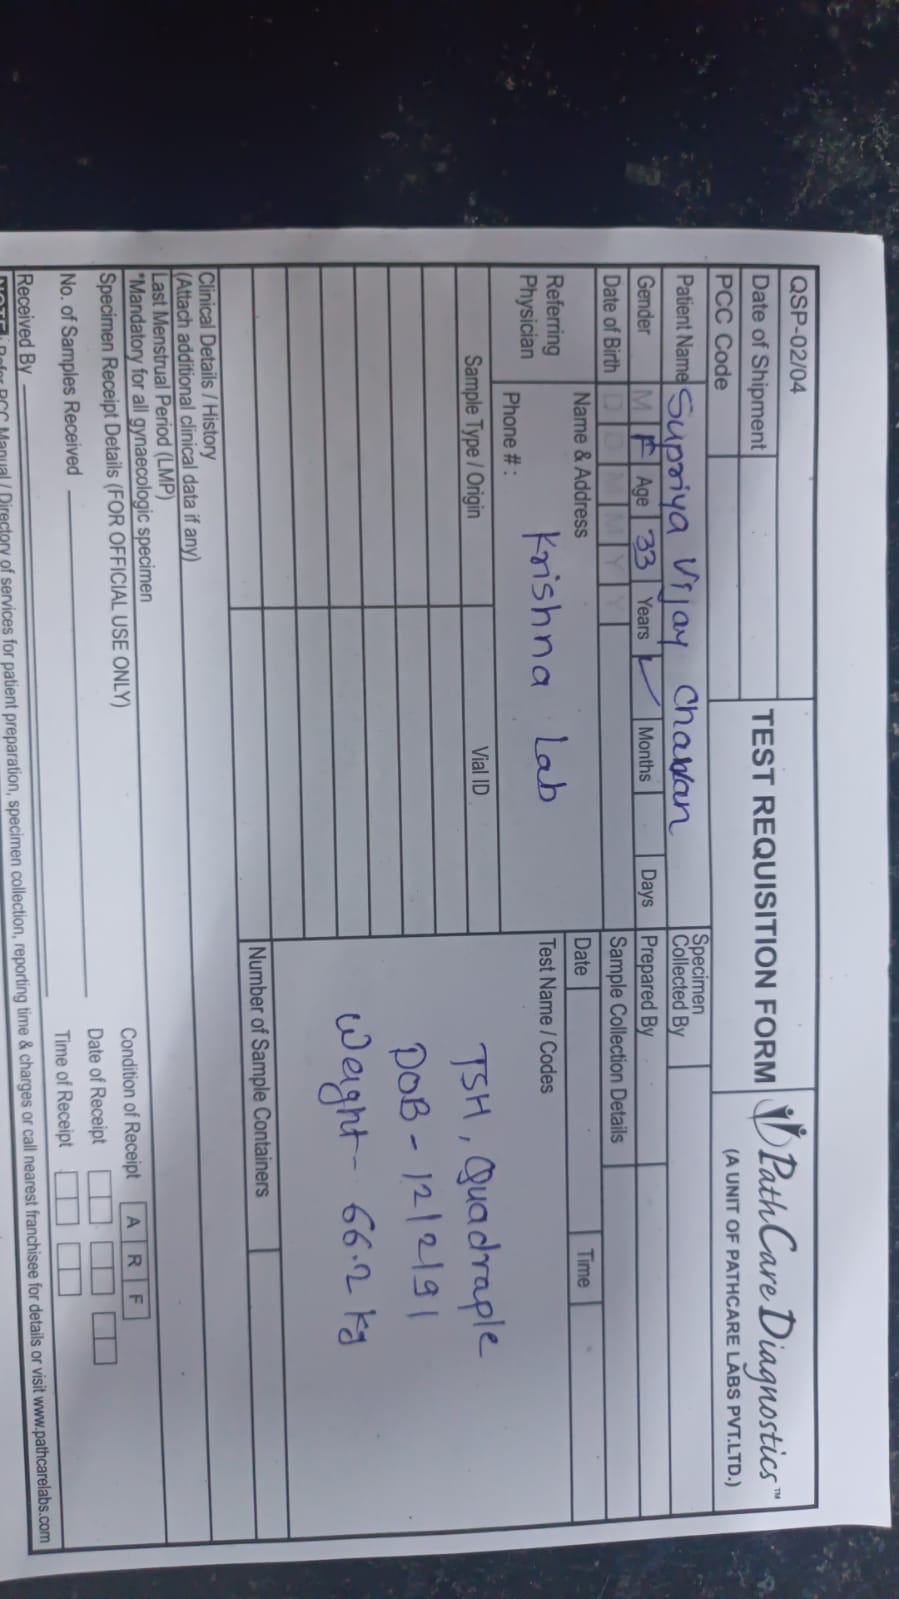 QSP-02/04
TEST REQUISITION FORM
PathCare Diagnostics™
(A UNIT OF PATHCARE LABS PVT.LTD.)
Date of Shipment
PCC Code
Specimen Collected By
Patient Name Supriya Vijay Chavan
Prepared By
Gender M F Age 33 Years Months Days
Sample Collection Details
Date of Birth D D M M Y Y
Date Time
Referring Physician
Name & Address
Krishna Lab
Phone # :
Test Name / Codes
Sample Type / Origin Vial ID
TSH, Quadraple
DOB - 12/2/91
Weight - 66.2 kg
Number of Sample Containers
Clinical Details / History
(Attach additional clinical data if any)
Last Menstrual Period (LMP)
*Mandatory for all gynaecologic specimen
Specimen Receipt Details (FOR OFFICIAL USE ONLY)
Condition of Receipt A R F
No. of Samples Received
Date of Receipt
Received By
Time of Receipt
NOTE : Refer PCC Manual / Directory of services for patient preparation, specimen collection, reporting time & charges or call nearest franchisee for details or visit www.pathcarelabs.com